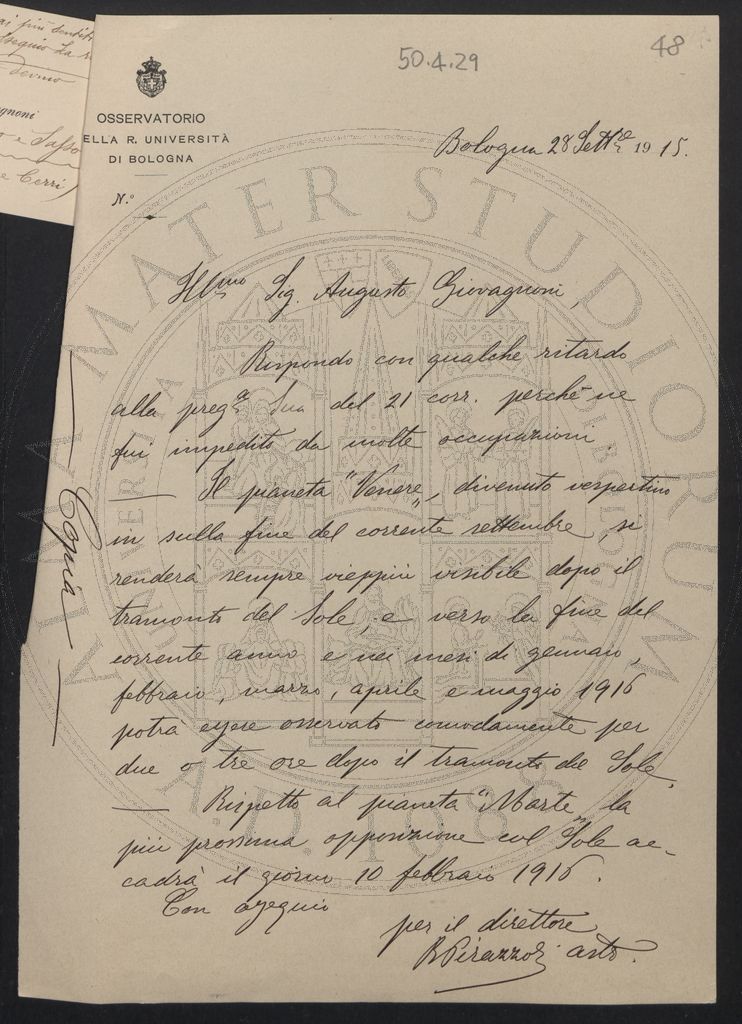 50.4.29
48
OSSERVATORIO
ELLA R. UNIVERSITÀ
DI BOLOGNA
N.º
Bologna 28 Sett.e 1915.
Ill.mo Sig. Augusto Giovagnoni,
Rispondo con qualche ritardo
alla preg. Sua del 21 corr. perchè ne
fui impedito da molte occupazioni.
Il pianeta "Venere„ divenuto vespertino
in sulla fine del corrente settembre, si
renderà sempre vieppiù visibile dopo il
tramonto del Sole, e verso la fine del
corrente anno e nei mesi di gennaio,
febbraio, marzo, aprile e maggio 1916
potrà essere osservato comodamente per
due o tre ore dopo il tramonto del Sole.
Rispetto al pianeta "Marte„ la
più prossima opposizione col Sole ac-
cadrà il giorno 10 febbraio 1916.
Con ossequio
per il direttore
R Pirazzoli astr.
Copia
ALMA MATER STUDIORUM
A.D. 1088
gnoni
e Cerri